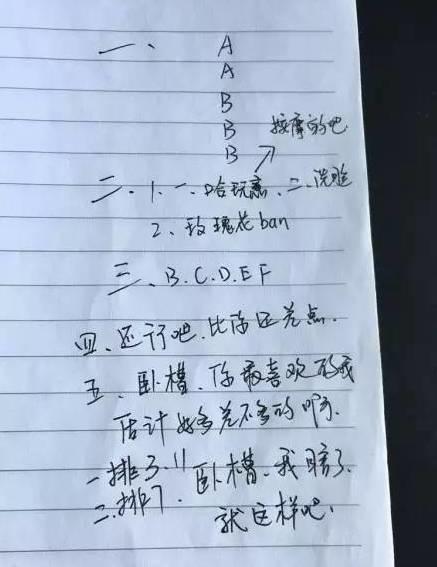 一、 A
A
B
B
B 按摩的吧
二、1、一、哈玩意、二、洗
2、玫瑰花ban
三、B.C.D.E.F
四、还行吧.比你还差点.
五、卧槽、你最喜欢的我
估计好多差不多的啊.
一排3.11 卧槽、我瞎了
二.排7. 就这样吧.